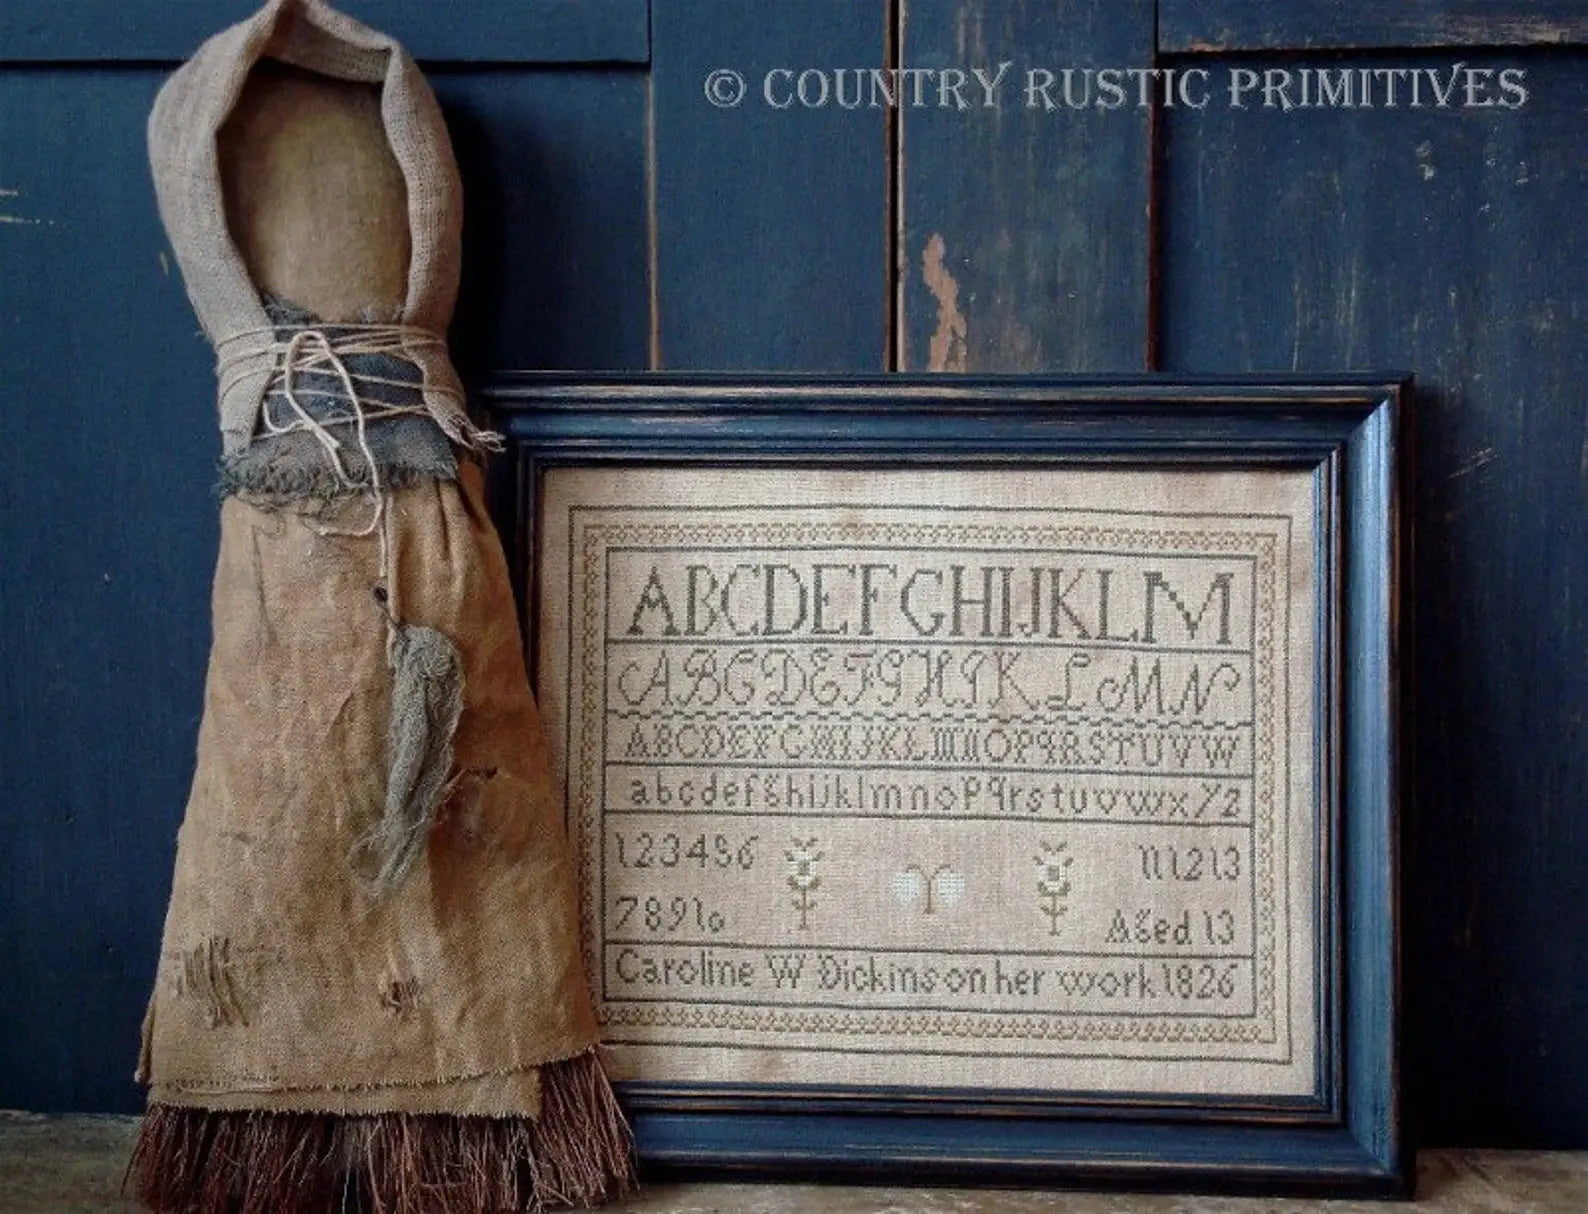 © COUNTRY RUSTIC PRIMITIVES
ABCDEFGHIJKLM
ABCDEFGHIKLMN
ABCDEFGHIJKLMNOPQRSTUVW
abcdefghijklmnopqrstuvwxyz
123456
111213
78910
Aged 13
Caroline W Dickinson her work 1826